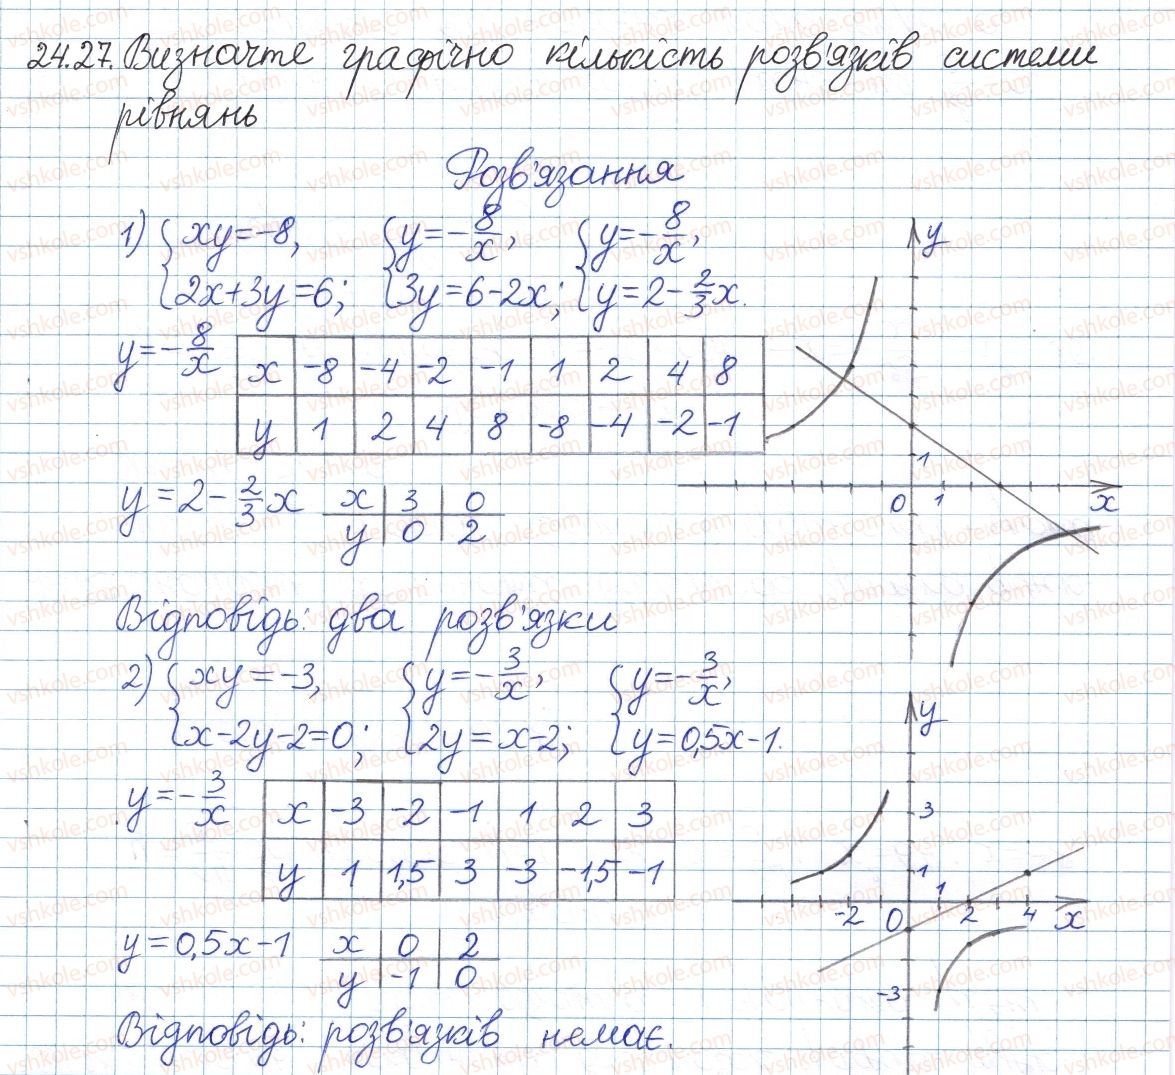 24.27. Визначте графічно кількість розв'язків системи
рівнянь
Розв'язання
1) { xy = -8, 2x + 3y = 6; { y = -8/x, 3y = 6 - 2x; { y = -8/x, y = 2 - 2/3 x.
y = -8/x
x | -8 | -4 | -2 | -1 | 1 | 2 | 4 | 8
y | 1 | 2 | 4 | 8 | -8 | -4 | -2 | -1
y = 2 - 2/3 x
x | 3 | 0
y | 0 | 2
y
1
0 1 x
Відповідь: два розв'язки
2) { xy = -3, x - 2y - 2 = 0; { y = -3/x, 2y = x - 2; { y = -3/x, y = 0,5x - 1.
y = -3/x
x | -3 | -2 | -1 | 1 | 2 | 3
y | 1 | 1,5 | 3 | -3 | -1,5 | -1
y = 0,5x - 1
x | 0 | 2
y | -1 | 0
y
3
1
1
-2 0 2 4 x
-3
Відповідь: розв'язків немає.